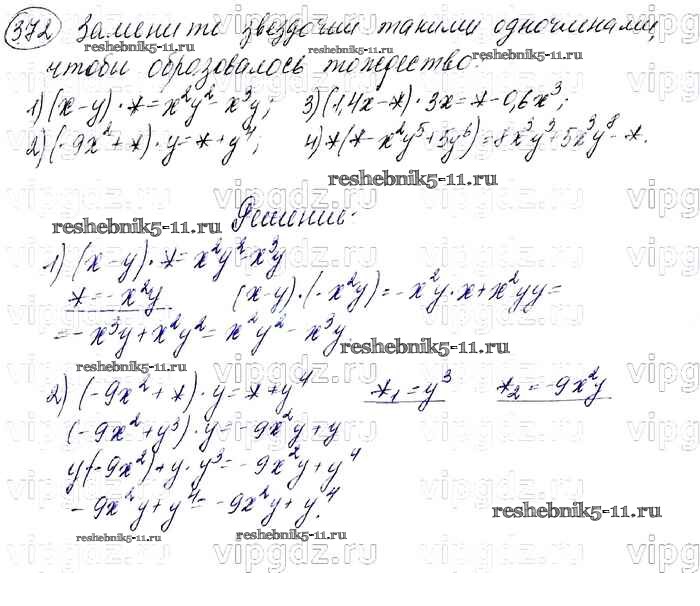 372 Замените звездочки такими одночленами,
чтобы образовалось тождество:
1) (x-y)·*=x²y²-x³y; 3) (1,4x-*)·3x=*-0,6x³;
2) (-9x²+*)·y=*+y⁴; 4) *(*-x²y⁵+5y⁶)=8x³y³+5x³y⁸-*.
reshebnik5-11.ru
Решение.
1) (x-y)·*=x²y²-x³y
*=-x²y (x-y)·(-x²y)=-x²y·x+x²yy=
=-x³y+x²y²=x²y²-x³y
reshebnik5-11.ru
2) (-9x²+*)·y=*+y⁴ *₁=y³ *₂=-9x²y
(-9x²+y³)·y=-9x²y+y
y(-9x²)+y·y³=-9x²y+y⁴
-9x²y+y⁴=-9x²y+y⁴.
reshebnik5-11.ru
vipgdz.ru